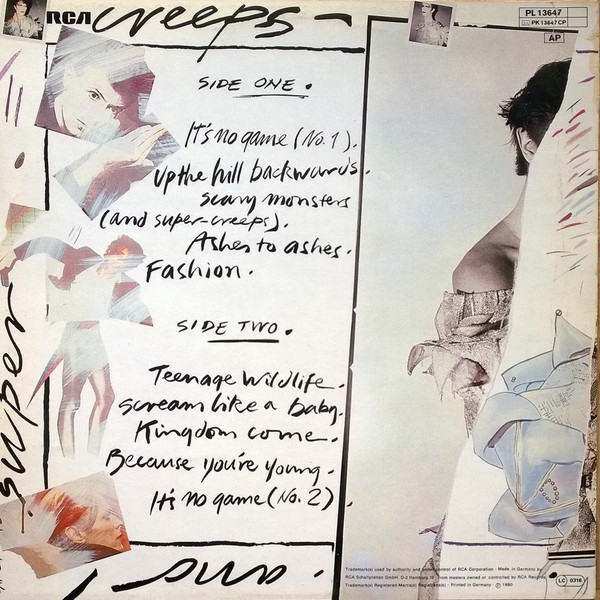 RCA creeps
PL 13647
PK 13647 CP
AP
SIDE ONE.
It's no game (No. 1).
Up the hill backwards.
scary monsters
(and super-creeps).
Ashes to ashes.
Fashion.
SIDE TWO.
Teenage Wildlife.
scream like a baby.
Kingdom come.
Because you're young.
It's no game (No. 2).
super
and
Trademark(s) used by authority and under control of RCA Corporation · Made in Germany by
RCA Schallplatten GmbH, D-2 Hamburg from masters owned or controlled by RCA Records
Trademark(s) Registered · Marca(s) Registrada(s) · Printed in Germany · Ⓟ 1980
LC 0316